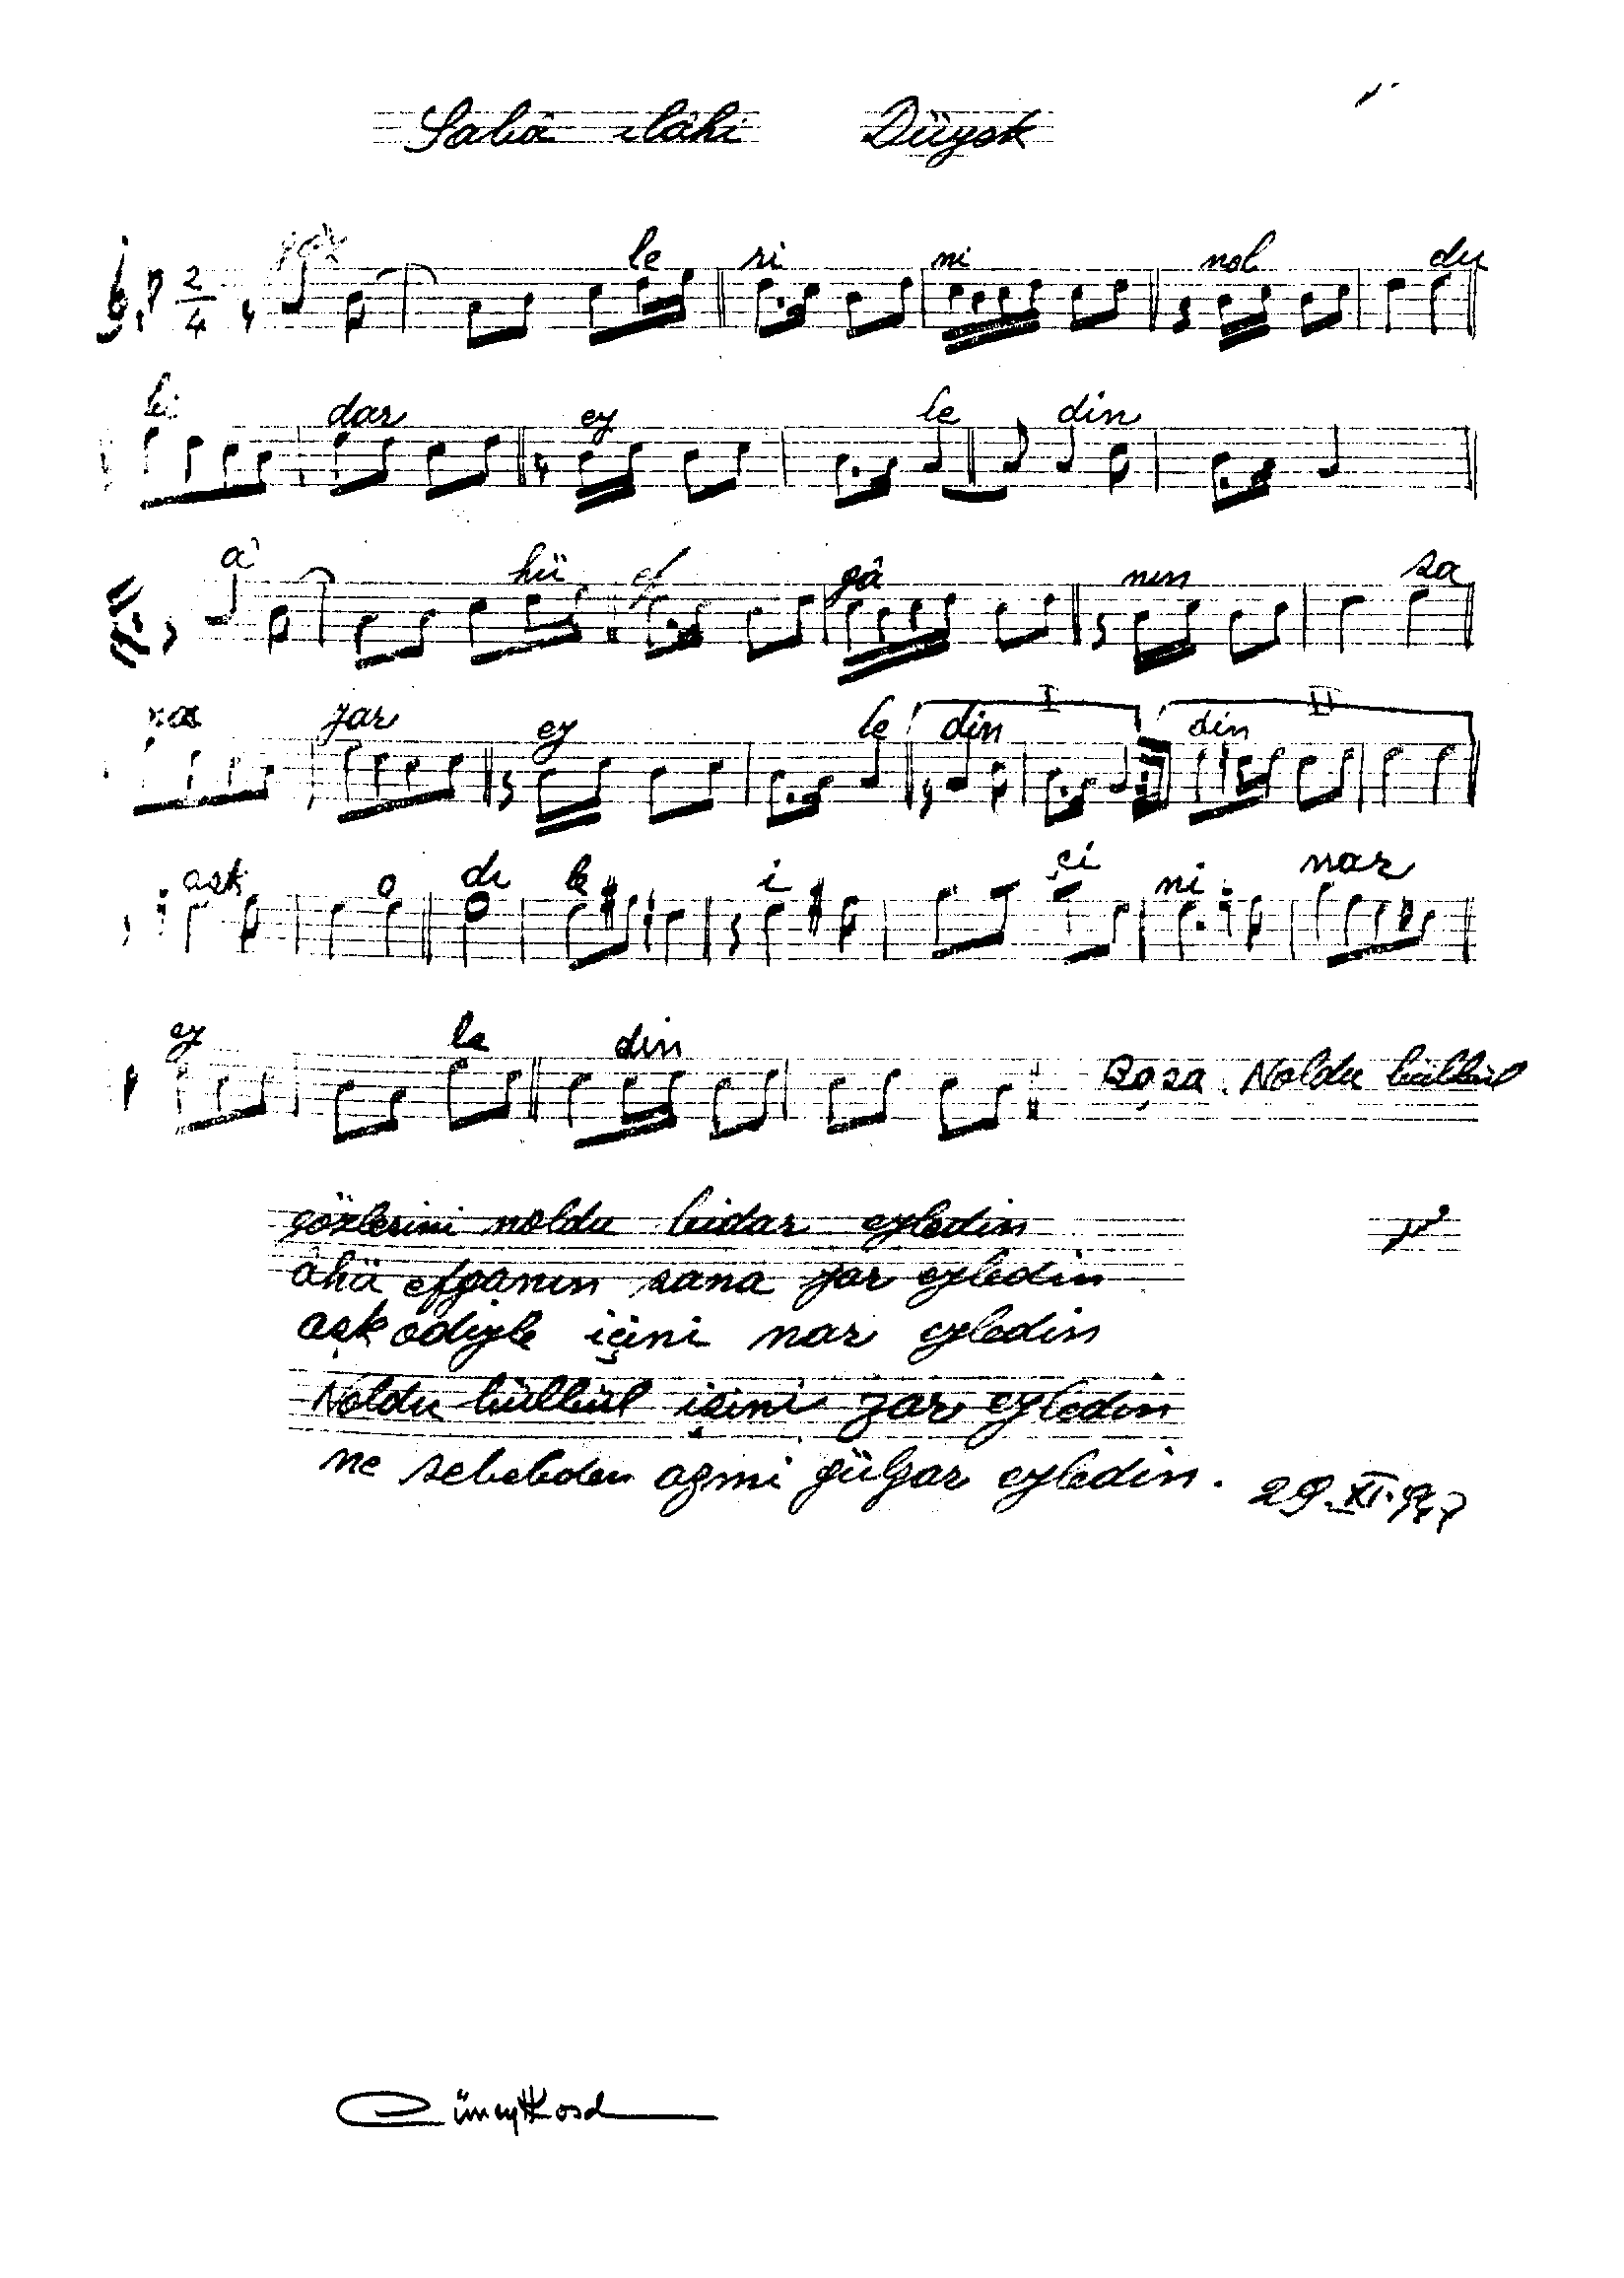 Saba ilâhi Düyek
2
4
le si ni nol du
bi dar ey le din
â hü ef gâ nın sa
na zar ey le din din
I II
aşk o di le i çi ni nar
ey le din Noldu bülbül
gözlerini noldu bidar eyledin
âhü efganın sana yar eyledin
aşk odiyle içini nar eyledin
Noldu bülbül işini zar eyledin
ne sebebden azmi gülzar eyledin.
29.XI.977
Cüneyt Kosal